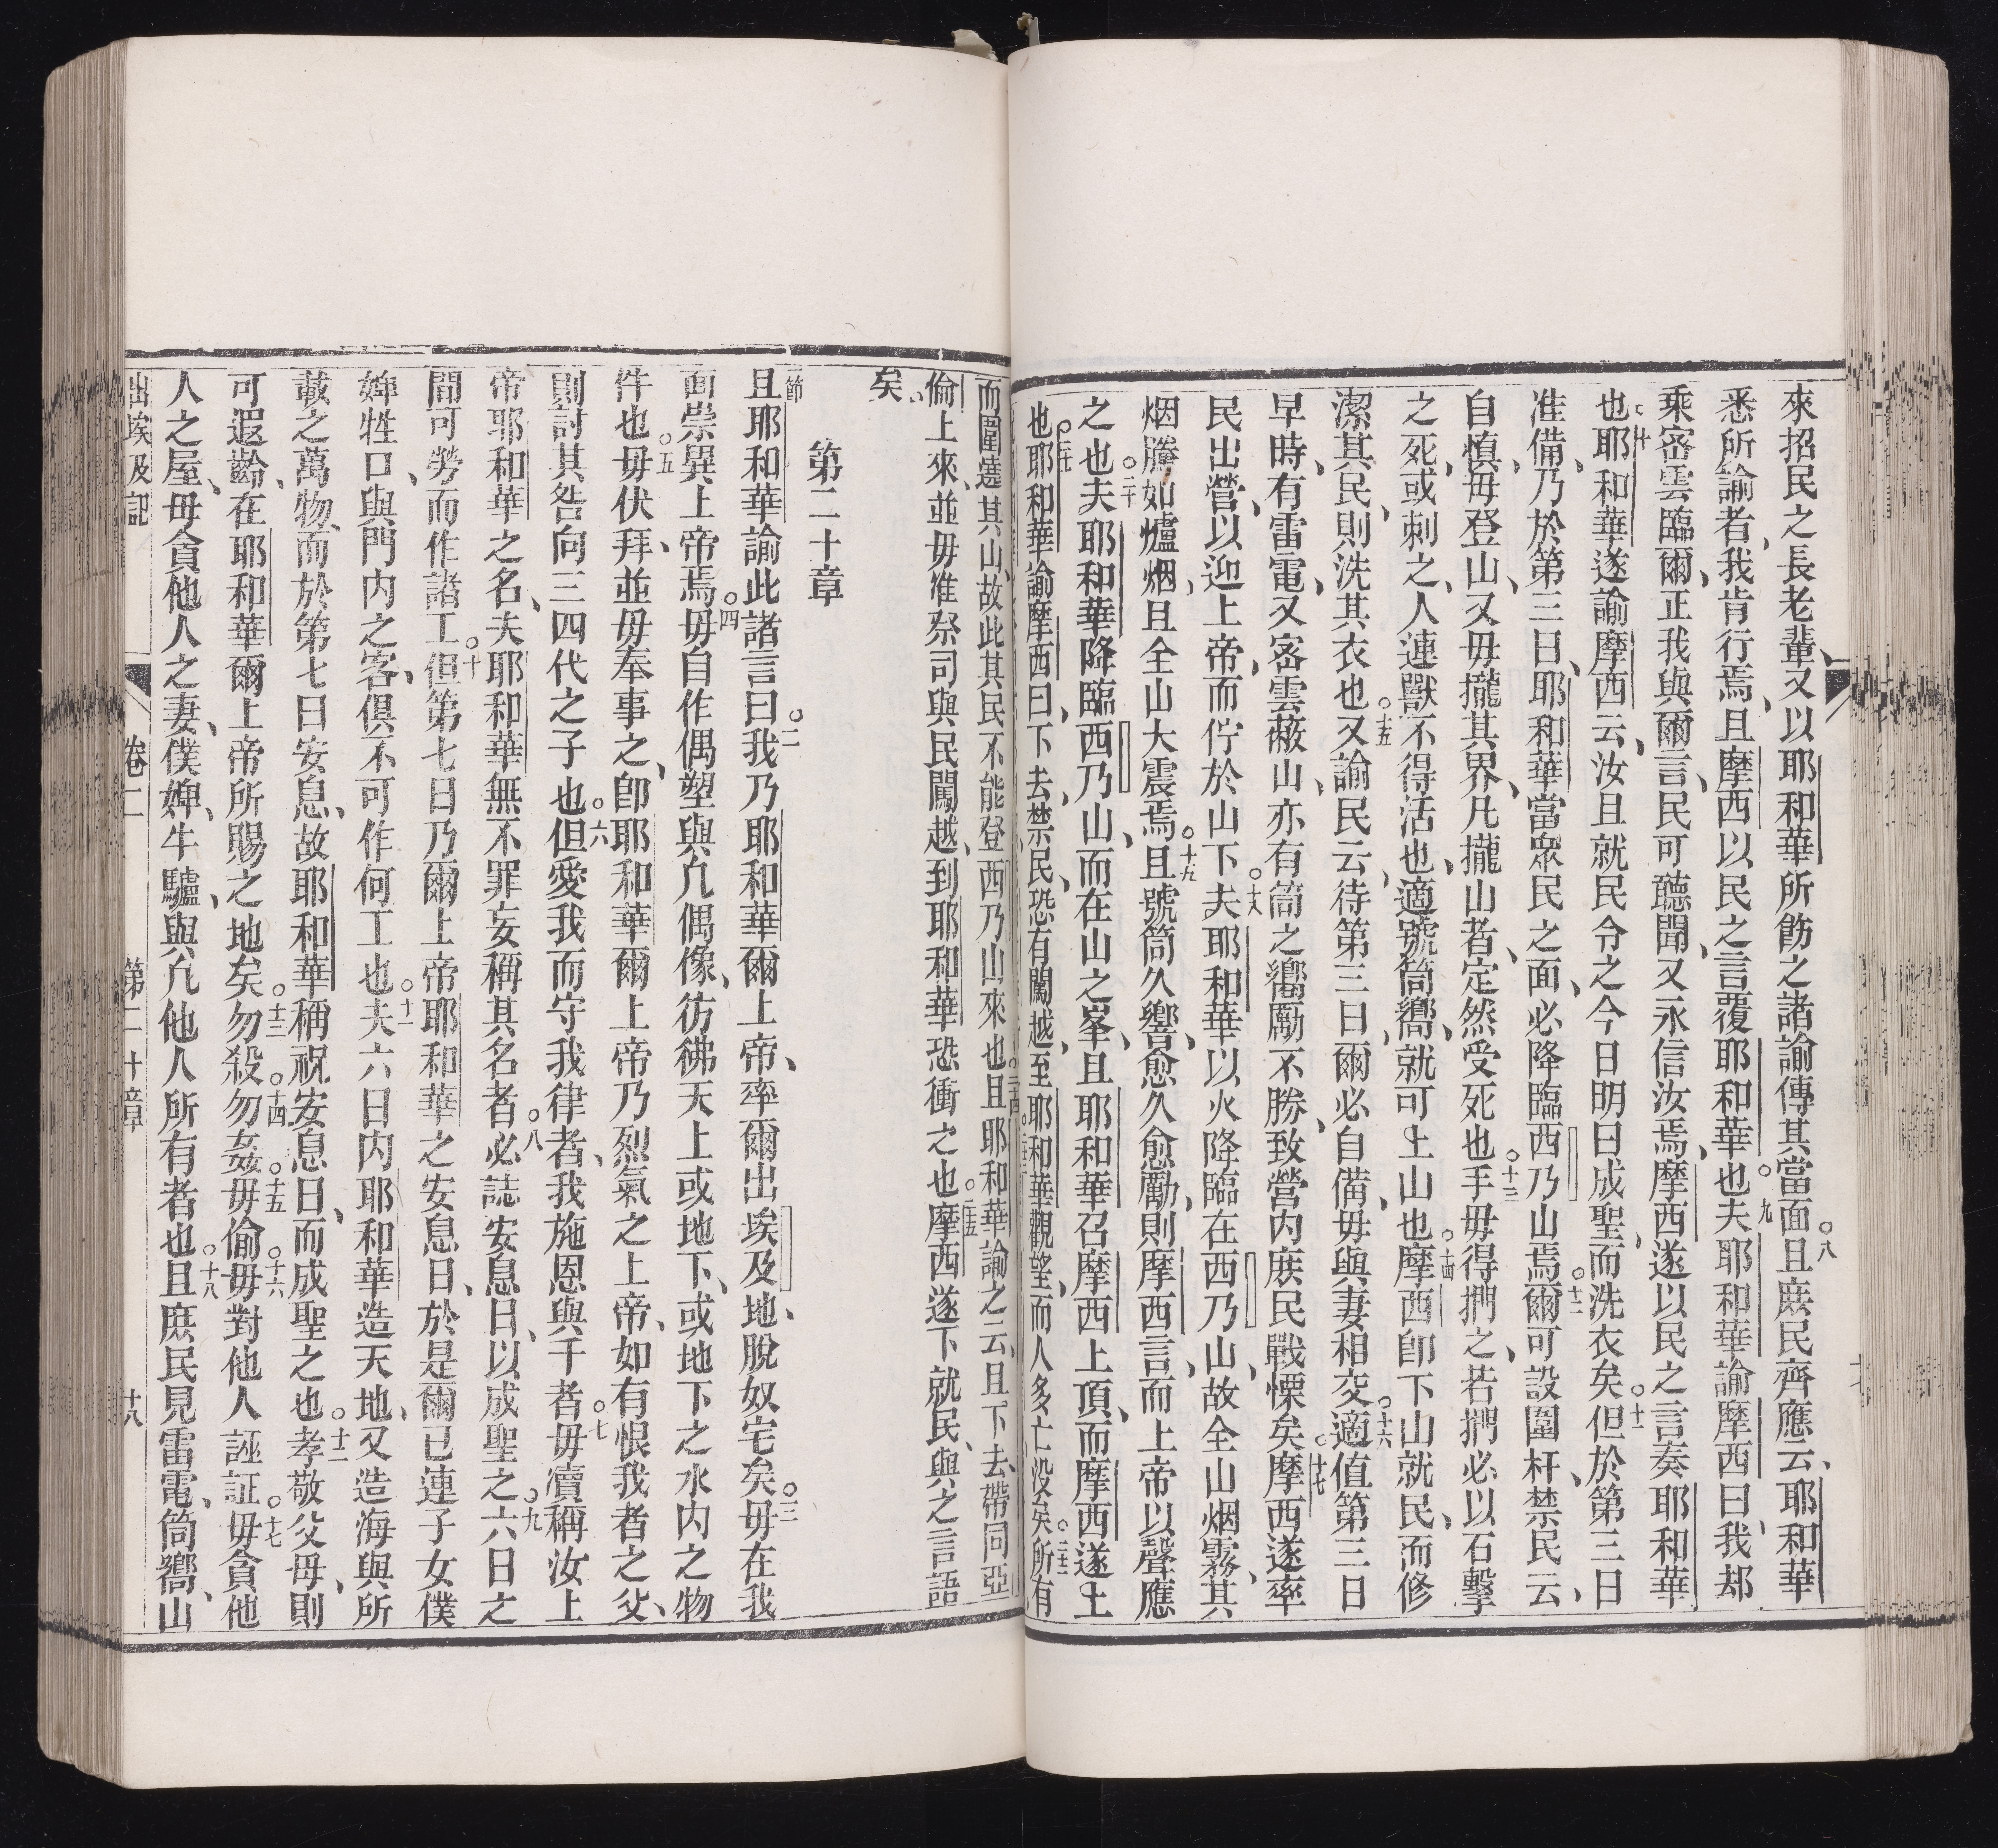 來招民之長老輩、又以耶和華所飭之諸諭傳其當面。八且庶民齊應云、耶和華
悉所諭者、我肯行焉、且摩西以民之言覆耶和華也。九夫耶和華諭摩西曰、我却
乘密雲臨爾、正我與爾言、民可聽聞、又永信汝焉、摩西遂以民之言奏耶和華
也。十耶和華遂諭摩西云、汝且就民、令之今日明日成聖、而洗衣矣。十一但於第三日
准備、乃於第三日、耶和華當眾民之面、必降臨西乃山焉。十二爾可設圍杆、禁民云、
自慎、毋登山、又毋攏其界、凡攏山者、定然受死也。十三手毋得捫之、若捫必以石擊
之死、或刺之、人連獸不得活也、適號筒嚮、就可上山也。十四摩西即下山就民、而修
潔其民、則洗其衣也。十五又諭民云、待第三日、爾必自備、毋與妻相交。十六適值第三日
早時、有雷電、又密雲蔽山、亦有筒之嚮勵不勝、致營內庶民戰慄矣。十七摩西遂率
民出營、以迎上帝、而佇於山下。十八夫耶和華以火降臨在西乃山、故全山烟霧、其
烟騰如爐烟、且全山大震焉。十九且號筒久響、愈久愈勵、則摩西言、而上帝以聲應
之也。二十夫耶和華降臨西乃山、而在山之峯、且耶和華召摩西上頂、而摩西遂上
也。二一耶和華諭摩西曰、下去禁民、恐有闖越、至耶和華觀望、而人多亡沒矣。二二所有
而圍遶其山、故此其民不能登西乃山來也。二四且耶和華諭之云、且下去、帶同亞
倫上來、並毋准祭司與民闖越、到耶和華、恐衝之也。二五摩西遂下就民、與之言語
矣、
第二十章
節一且耶和華諭此諸言曰。二我乃耶和華爾上帝、率爾出埃及地、脫奴宅矣。三毋在我
面崇異上帝焉。四毋自作偶塑、與凡偶像、彷彿天上或地下、或地下之水內之物
件也。五毋伏拜、並毋奉事之、即耶和華爾上帝、乃烈氣之上帝、如有恨我者之父、
則討其咎、向三四代之子也。六但愛我而守我律者、我施恩與千者。七毋瀆稱汝上
帝耶和華之名、夫耶和華無不罪妄稱其名者。八必誌安息日、以成聖之。九六日之
間可勞而作諸工。十但第七日、乃爾上帝耶和華之安息日、於是爾已連子女僕
婢牲口、與門內之客、俱不可作何工也。十一夫六日內耶和華造天地、又造海與所
載之萬物、而於第七日安息、故耶和華稱祝安息日、而成聖之也。十二孝敬父母、則
可遐齡、在耶和華爾上帝所賜之地矣。十三勿殺。十四勿姦。十五毋偷。十六毋對他人誣証。十七毋貪他
人之屋、毋貪他人之妻、僕婢、牛驢、與凡他人所有者也。十八且庶民見雷電、筒嚮、山
出埃及記 卷二 第二十章 十八